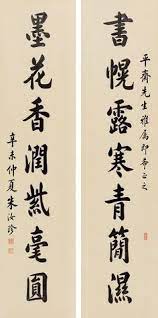 平齋先生雅屬即希正之
書幌露寒青簡濕
墨花香潤紫毫圓
辛未仲夏朱汝珍